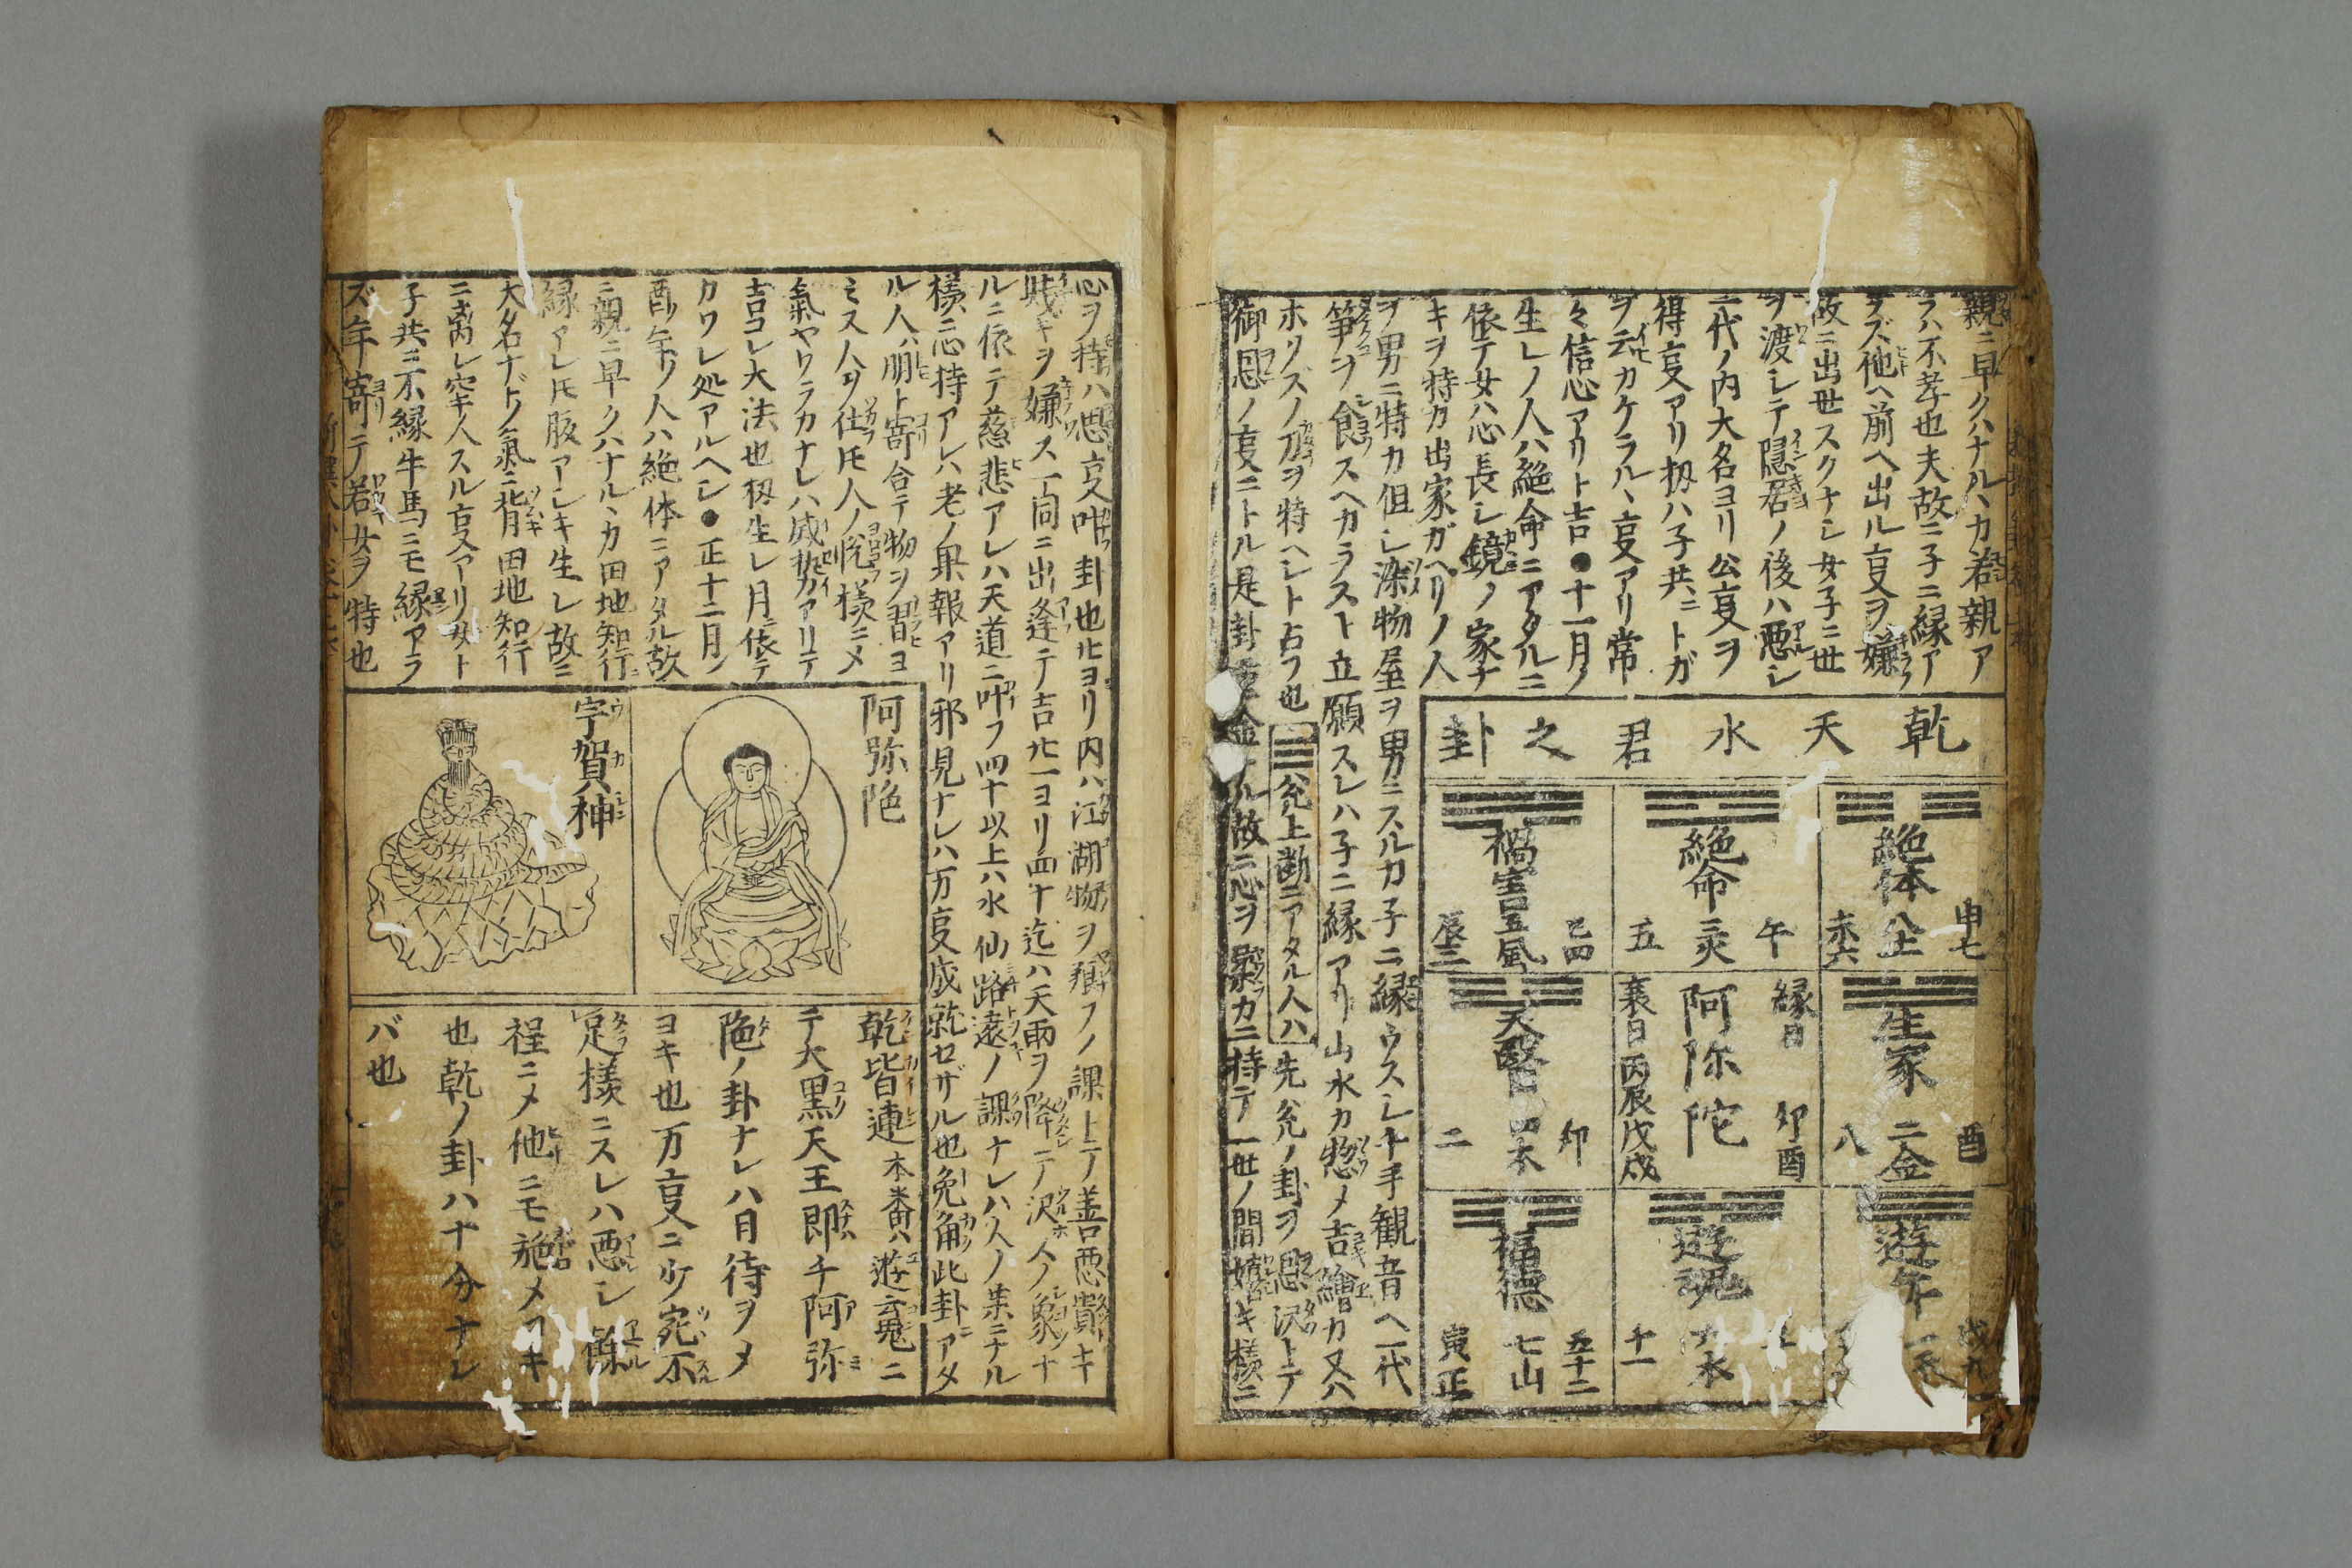 親ニ早クハナルヽカ若親ア
ラハ不孝也夫故ニ子ニ縁ア
ラズ他ヘ前ヘ出ル㕝ヲ嫌
故ニ出世スクナシ女子ニ世
ヲ渡シテ隠君ノ後ハ悪シ
二代ノ内大名ヨリ公㕝ヲ
得㕝アリ扨ハ子共ニトガ
ヲ云カケラルヽ㕝アリ常
々信心アリト吉●十一月ノ
生レノ人ハ絶命ニアタルニ
依テ女ハ心長シ鏡ノ家ナ
キヲ持カ出家ガヘリノ人
乾天水君之卦
絶体
申七
八土
未六
絶命
午
三火
五
禍害
巳四
五風
辰三
生家
酉
二金
八
縁日
卯酉
阿弥陀
衰日
丙辰戊戌
天醫
卯
四木
二
遊年
戌九
遊魂
十一
福徳
五十二
七山
寅正
ヲ男ニ特カ但シ染物屋ヲ男ニスルカ子ニ縁ウスシ千手観音ヘ一代
ノ食スヘカラスト立願スレハ子ニ縁アリ山水カ惣メ吉繪カ又ハ
ホリズノ ヲ特ヘシト占フ也
☱兊上断ニアタル人ハ
先兊ノ卦ヲ恩沢トテ
御恩ノ㕝ニトル是卦 金ナル故ニ心ヲ カニ持テ一世ノ間嬉キ様ニ
心ヲ持ハ悪㕝叶卦也北ヨリ内ハ江湖物ヲ ノ課トテ善悪貴キ
賎キヲ嫌ス一同ニ出逢テ吉北一ヨリ四十迄ハ天雨ヲ降テ沢人ノ象ナ
ルニ依テ慈悲アレハ天道ニ叶フ四十以上ハ水仙路遠ノ課ナレハ人ノ集ニナル
様ニ心持アレハ老ノ果報アリ邪見ナレハ万㕝成就セザル也免角此卦ニアタ
ル人ハ朋ト寄合テ物ヲ習ヨ
ミス人ヲ仕氏人ノ悦様ニメ
氣ヤワラカナレハ威勢アリテ
吉コレ大法也扨生レ月ニ依テ
カワレ処アルヘシ●正十二月ノ
酉ノ年ノ人ハ絶体ニアタル故
ニ親ニ早クハナルヽカ田地知行ニ
縁アレ氏服アシキ生レ故ニ
大名ナドノ氣ニ背田地知行
ニ离レ空キ人スル㕝アリ女ト
子共ニ不縁牛馬ニモ縁アラ
ズ年寄テ若女ヲ特也
阿弥陀
宇賀神
乾皆連本番ハ遊魂ニ
テ大黒天王即チ阿弥
陀ノ卦ナレハ月待ヲメ
ヨキ也万㕝ニ少宛不
足様ニスレハ悪シ餘ル
程ニメ他ニモ施メヨキ
也乾ノ卦ハ十分ナレ
バ也